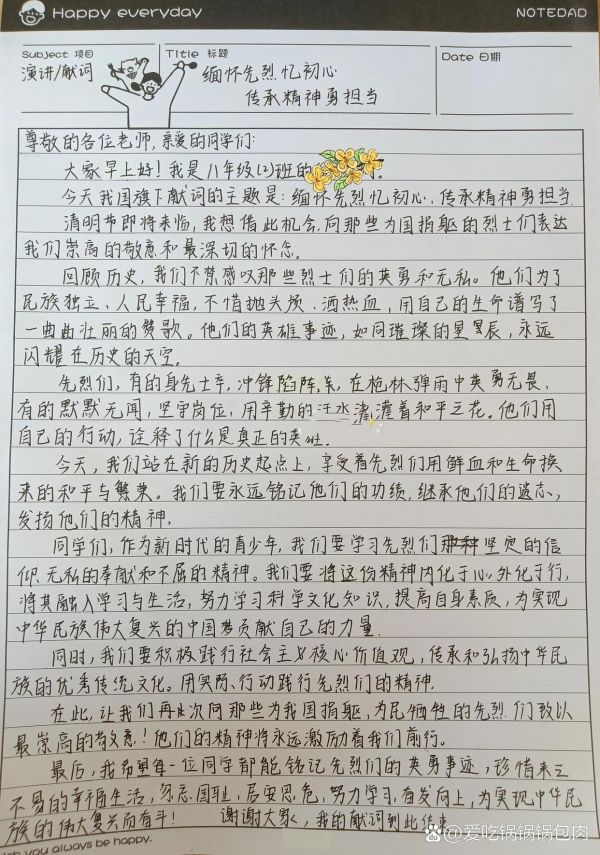 Happy everyday
NOTEDAD
Subject 项目
Title 标题
Date 日期
演讲/献词
缅怀先烈忆初心
传承精神勇担当
尊敬的各位老师,亲爱的同学们:
大家早上好!我是八年级(2)班的
今天我国旗下献词的主题是:缅怀先烈忆初心,传承精神勇担当.
清明节即将来临,我想借此机会,向那些为国捐躯的烈士们表达
我们崇高的敬意和最深切的怀念.
回顾历史,我们不禁感叹那些烈士们的英勇和无私。他们为了
民族独立、人民幸福,不惜抛头颅、洒热血,用自己的生命谱写了
一曲曲壮丽的赞歌。他们的英雄事迹,如同璀璨的星星辰,永远
闪耀在历史的天空.
先烈们,有的身先士卒,冲锋陷阵,在枪林弹雨中英勇无畏,
有的默默无闻,坚守岗位,用辛勤的汗水灌着和平之花。他们用
自己的行动,诠释了什么是真正的英雄.
今天,我们站在新的历史起点上,享受着先烈们用鲜血和生命换
来的和平与繁荣。我们要永远铭记他们的功绩,继承他们的遗志,
发扬他们的精神.
同学们,作为新时代的青少年,我们要学习先烈们坚定的信
仰、无私的奉献和不屈的精神。我们要将这份精神内化于心,外化于行,
将其融入学习与生活,努力学习科学文化知识,提高自身素质,为实现
中华民族伟大复兴的中国梦贡献自己的力量.
同时,我们要积极践行社会主义核心价值观,传承和弘扬中华民
族的优秀传统文化。用实际行动践行先烈们的精神.
在此,让我们再次向那些为我国捐躯,为民牺牲的先烈们致以
最崇高的敬意!他们的精神将永远激励着我们前行。
最后,我希望每一位同学都能铭记先烈们的英勇事迹,珍惜来之
不易的幸福生活,勿忘国耻,居安思危,努力学习,奋发向上,为实现中华民
族的伟大复兴而奋斗! 谢谢大家,我的献词到此结束
ish you always be happy.
@爱吃锅锅锅包肉